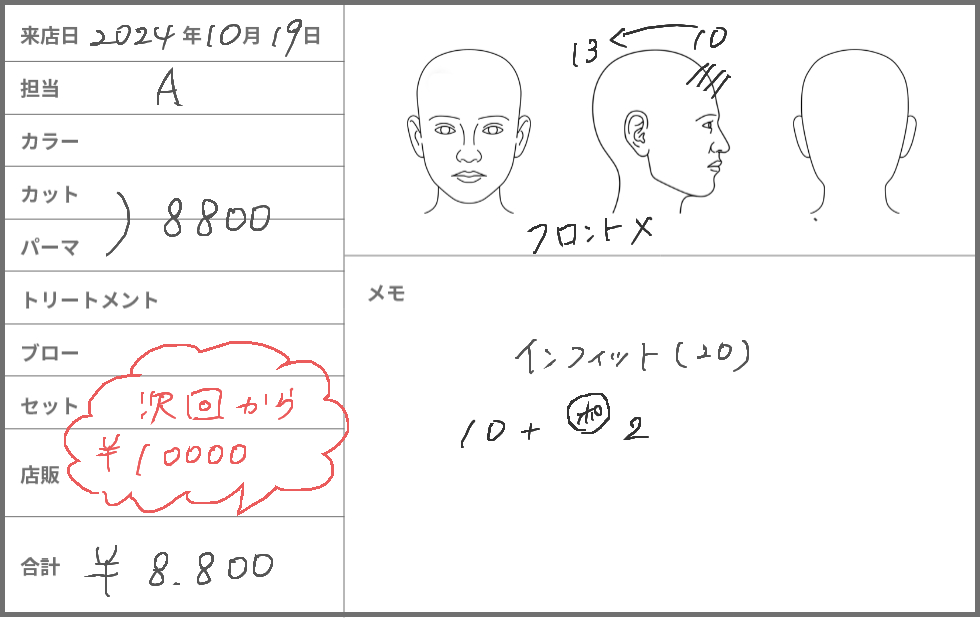 来店日 2024年10月19日
担当 A
カラー
カット
パーマ
) 8800
トリートメント
ブロー
セット
次回から
¥10000
店販
合計 ¥8.800
13 ← 10
フロント×
メモ
インフィット(20)
10+ ㋭ 2